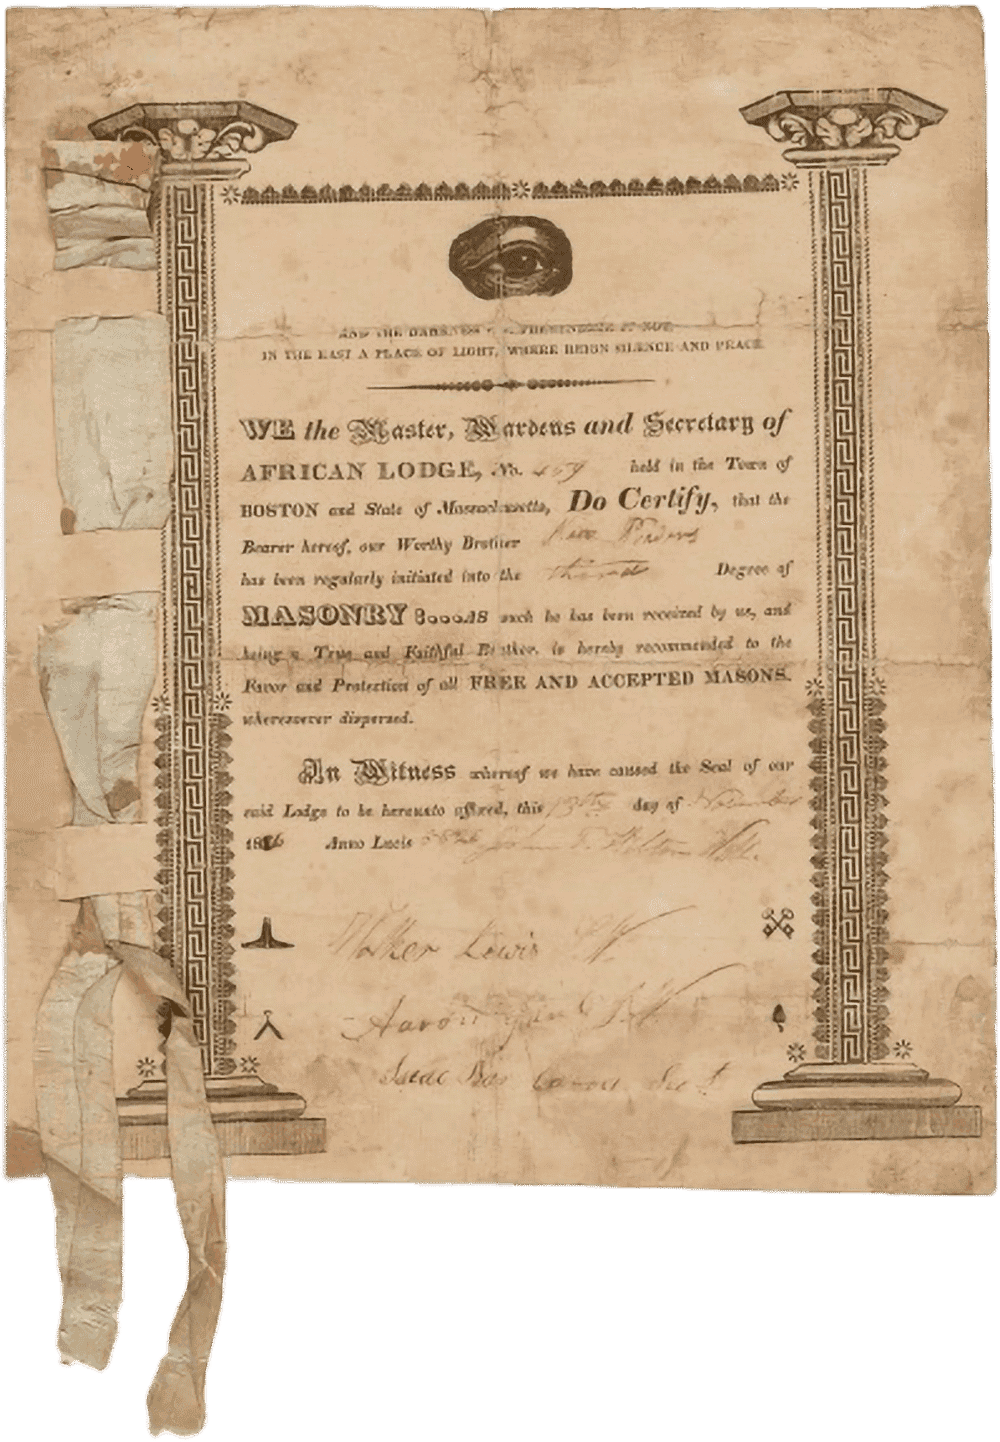 AND THE DARKNESS COMPREHENDED IT NOT.
IN THE EAST A PLACE OF LIGHT, WHERE REIGN SILENCE AND PEACE.
WE the Master, Wardens and Secretary of
AFRICAN LODGE, No. 459 held in the Town of
BOSTON and State of Massachusetts, Do Certify, that the
Bearer hereof, our Worthy Brother
has been regularly initiated into the third Degree of
MASONRY :...AS such he has been received by us, and
being a True and Faithful Brother, is hereby recommended to the
Favor and Protection of all FREE AND ACCEPTED MASONS.
wheresoever dispersed.
In Witness whereof we have caused the Seal of our
said Lodge to be hereunto affixed, this 13th day of November
1826 Anno Lucis 5826 John T. Hilton
Walker Lewis S W
Aaron J W
Isaac Sect